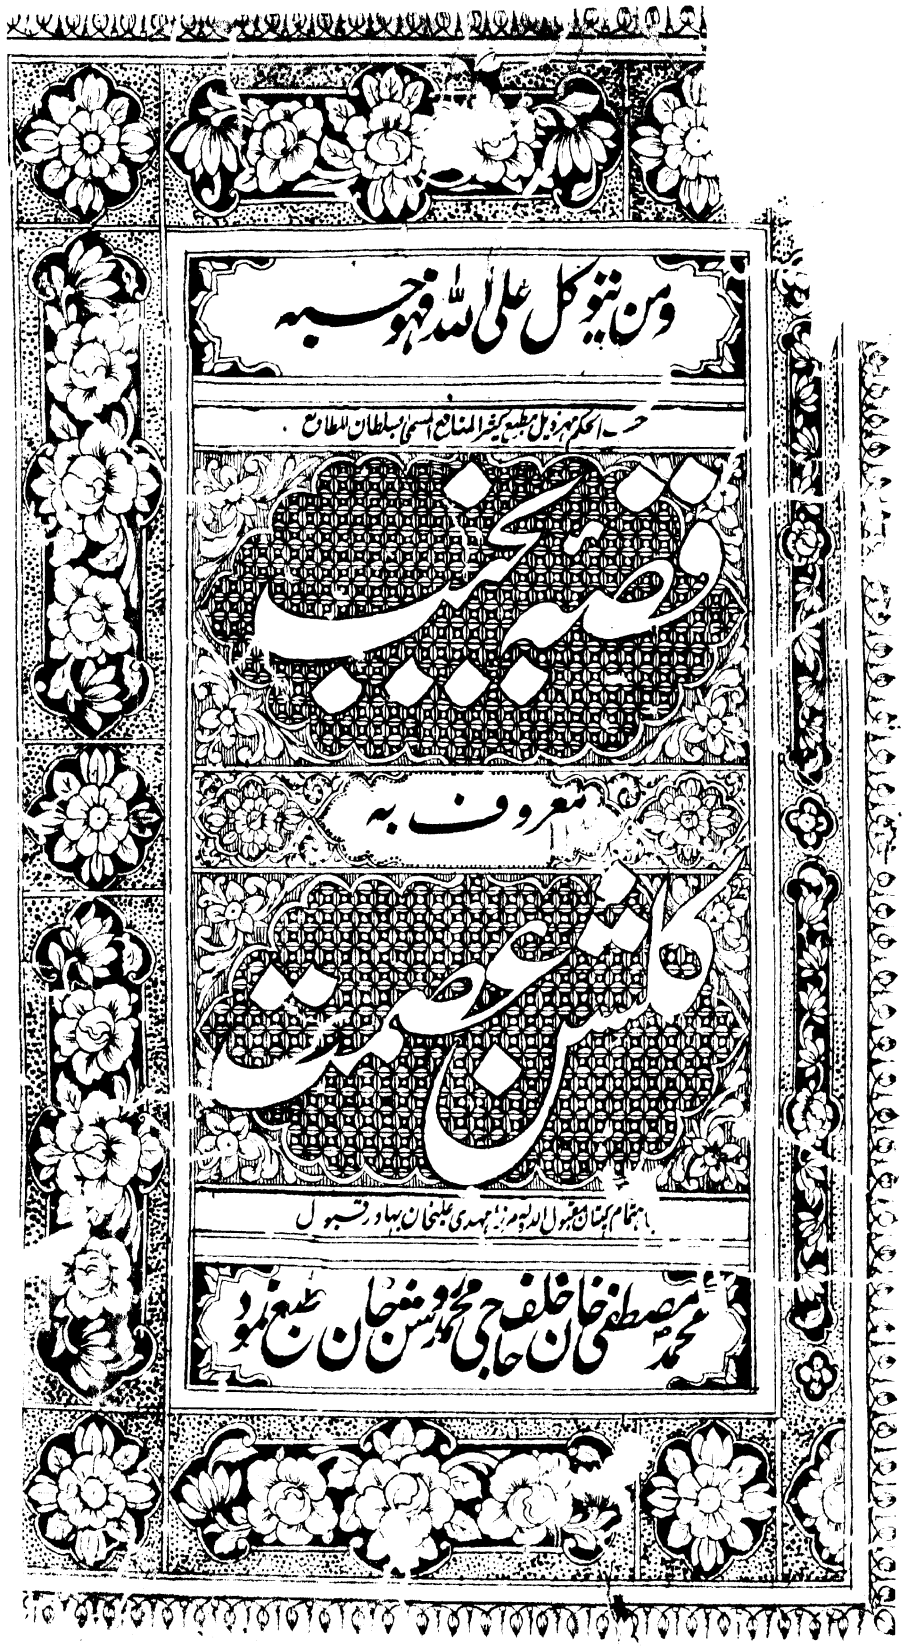 ومن یتوکل علی الله فهو حسبه
حسب الحکم مهر ذیل مطبع کثیر المنافع المسمی بسلطان المطابع
قصهٔ عجیب
معروف به
گلشن عصمت
باهتمام کپتان مقبول الدوله مرزا مهدی علیخان بهادر قبول
محمد مصطفی خان خلف حاجی محمد روشن خان طبع نمود